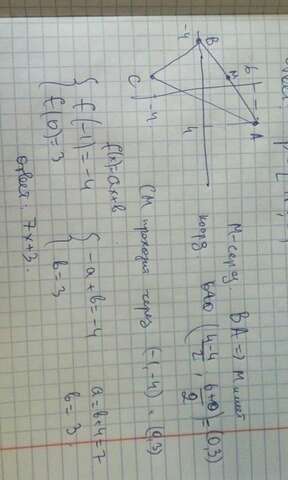 B
-4
C
M
6
-4
4
A
M- серед BA => M имеет
коорд BAO (4-4/2 ; 6+0/2) = (0,3)
CM проходит через (-1,-4) и (0,3)
f(x)=ax+b
{ f(-1) = -4
{ f(0) = 3
{ -a+b=-4
{ b=3
a=b+4=7
b=3
ответ: 7x+3.